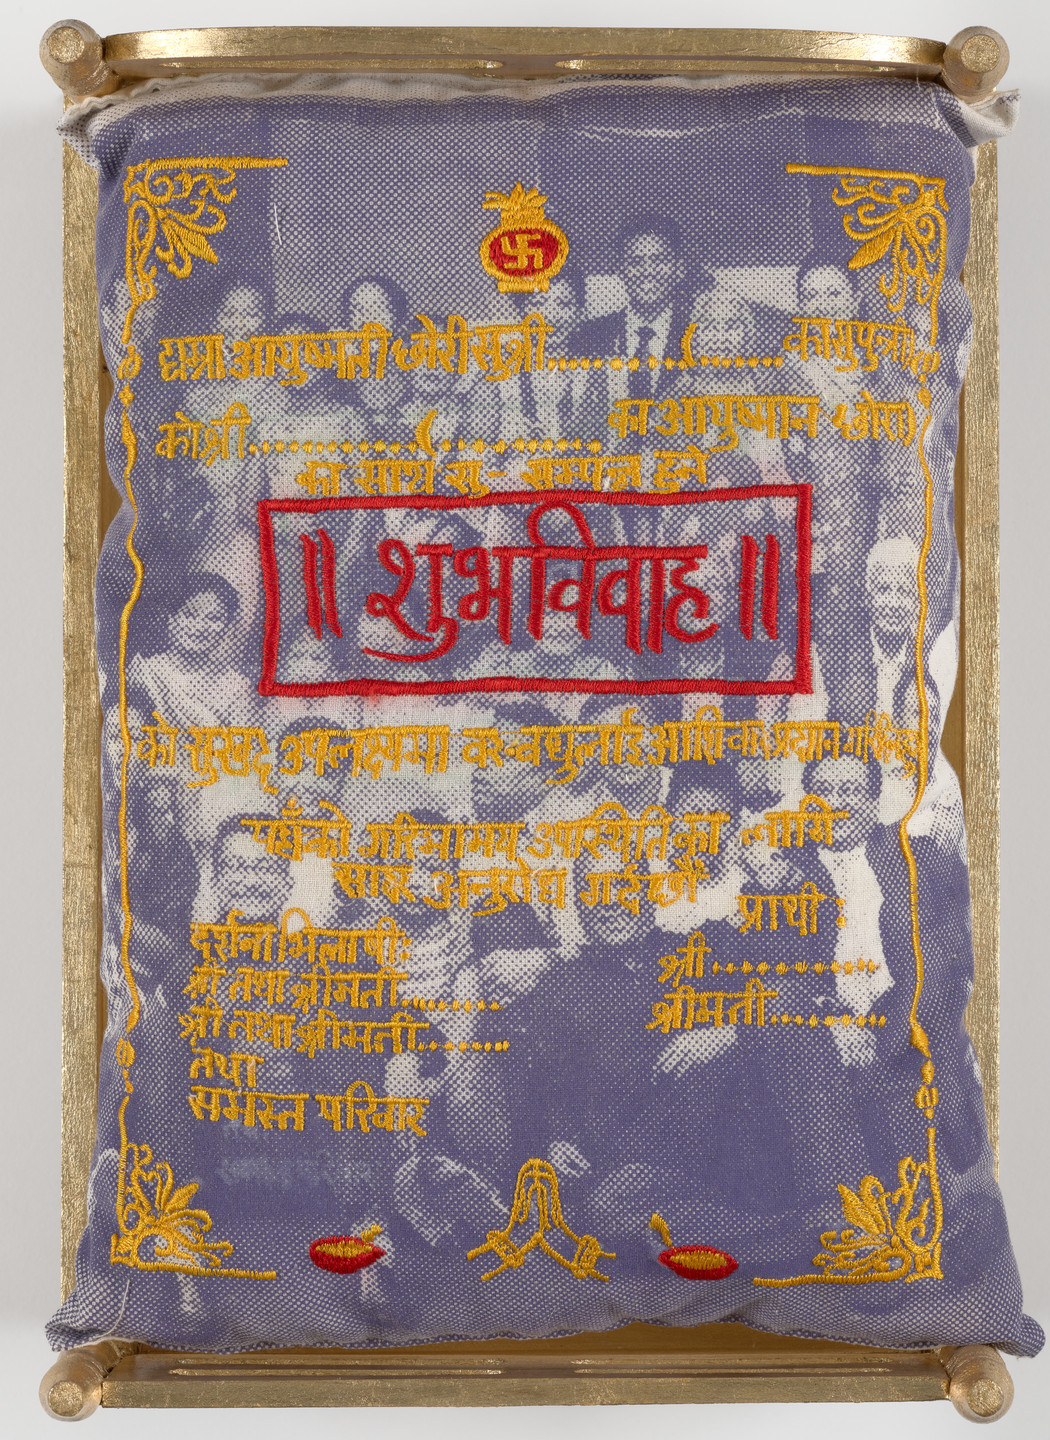 हाम्रा आयुष्मती छोरी सुश्री..................(..........का सुपुत्री
को श्री....................(....................का आयुष्मान छोरा
का साथ सु-सम्पन्न हुने
॥ शुभ विवाह ॥
को सुखद उपलक्षमा वर-वधुलाई आशिर्वाद प्रदान गरिदिनुहुन
यहाँको गरिमामय उपस्थिति का लागि
सादर अनुरोध गर्दछौं
प्रार्थी :
दर्शनाभिलाषी:
श्री तथा श्रीमती...........
श्री तथा श्रीमती..........
तथा
समस्त परिवार
श्री.................
श्रीमती............